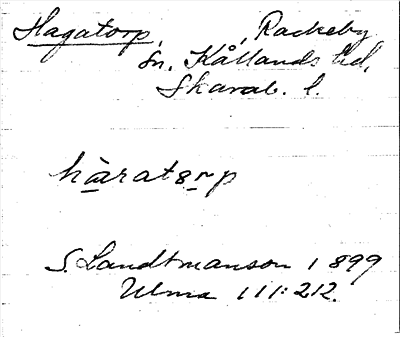 Hagatorp, , Rackeby
sn. Kållands hd,
Skarab. l.
hàratorp
S. Landtmanson 1899
Ulma 111:212.